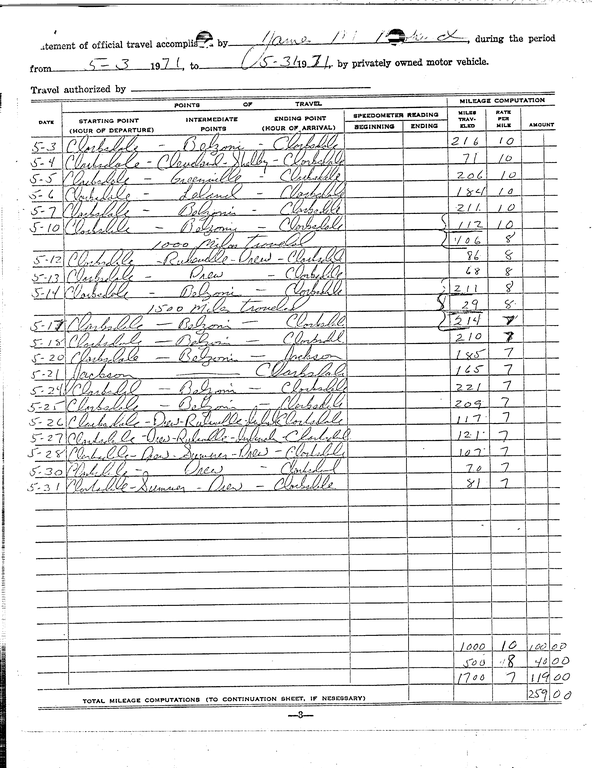 tement of official travel accomplis by James M , during the period
from 5-3 1971, to 5-31 1971, by privately owned motor vehicle.
Travel authorized by
POINTS OF TRAVEL MILEAGE COMPUTATION
DATE STARTING POINT (HOUR OF DEPARTURE) INTERMEDIATE POINTS ENDING POINT (HOUR OF ARRIVAL) SPEEDOMETER READING BEGINNING ENDING MILES TRAV- ELED RATE PER MILE AMOUNT
5-3 Clarksdale - Belzoni - Clarksdale 216 10
5-4 Clarksdale - Cleveland - Shelby - Clarksdale 71 10
5-5 Clarksdale - Greenville - Clarksdale 206 10
5-6 Clarksdale - Leland - Clarksdale 184 10
5-7 Clarksdale - Belzoni - Clarksdale 211 10
5-10 Clarksdale - Belzoni - Clarksdale 112 10
1000 Miles traveled 106 8
5-12 Clarksdale - Ruleville - Drew - Clarksdale 86 8
5-13 Clarksdale - Drew - Clarksdale 68 8
5-14 Clarksdale - Belzoni - Clarksdale 211 8
1500 Miles traveled 29 8
5-17 Clarksdale - Belzoni - Clarksdale 214 7
5-18 Clarksdale - Belzoni - Clarksdale 210 7
5-20 Clarksdale - Belzoni - Jackson 185 7
5-21 Jackson - Clarksdale 165 7
5-24 Clarksdale - Belzoni - Clarksdale 221 7
5-25 Clarksdale - Belzoni - Clarksdale 209 7
5-26 Clarksdale - Drew - Ruleville - Clarksdale 117 7
5-27 Clarksdale - Drew - Ruleville - Clarksdale 121 7
5-28 Clarksdale - Drew - Sumner - Drew - Clarksdale 107 7
5-30 Clarksdale - Drew - Clarksdale 70 7
5-31 Clarksdale - Sumner - Drew - Clarksdale 81 7
1000 10 100 00
500 8 40 00
1700 7 119 00
TOTAL MILEAGE COMPUTATIONS (TO CONTINUATION SHEET, IF NESESSARY) 259 00
—3—